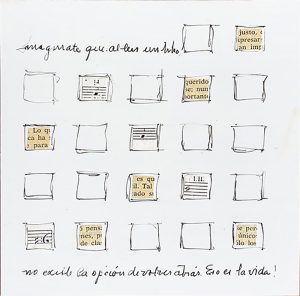 imaginate que al leer un libro
justo, c
epresar
an imp
14
querido
se; nun
portanto
Lo q
ca ha s
para
es qu
il. Tal
ado s
1.II.
pensa
nes, p
de cla
se per
único
ilo los
no existe la opción de volver atrás. Eso es la vida!